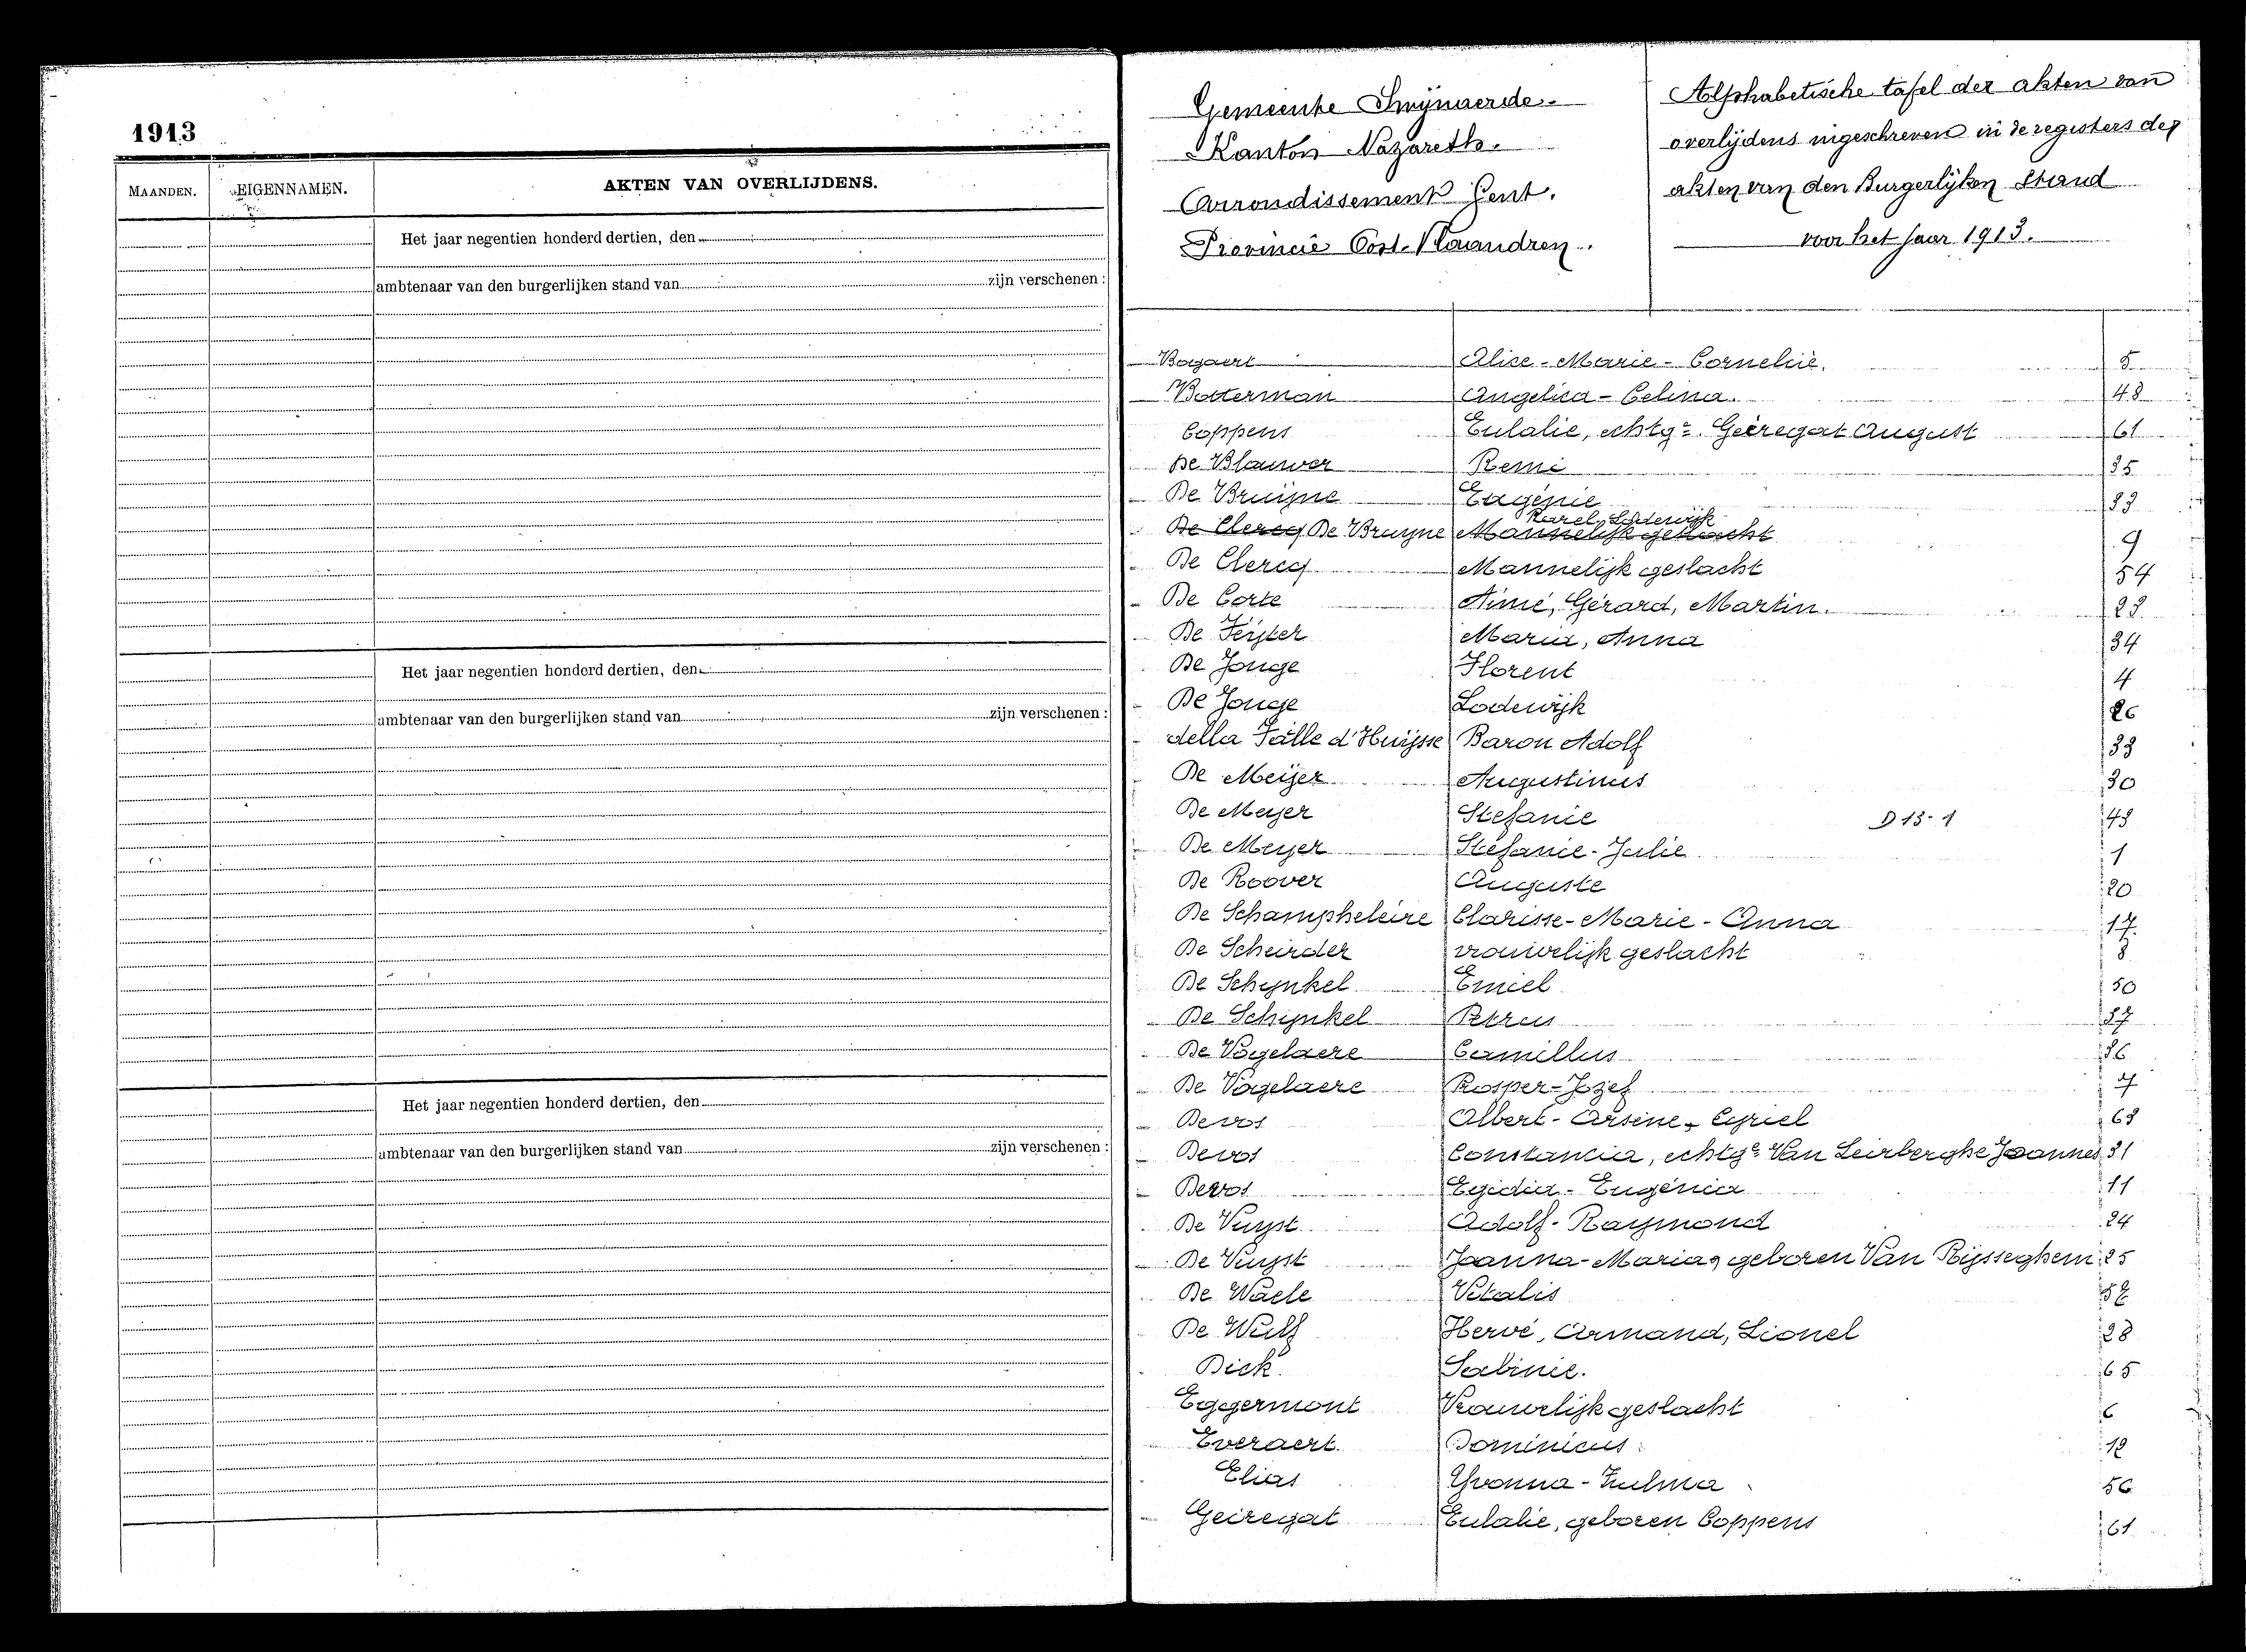 1913
MAANDEN. EIGENNAMEN. AKTEN VAN OVERLIJDENS.
Het jaar negentien honderd dertien, den
ambtenaar van den burgerlijken stand van zijn verschenen :
Het jaar negentien honderd dertien, den
ambtenaar van den burgerlijken stand van zijn verschenen :
Het jaar negentien honderd dertien, den
ambtenaar van den burgerlijken stand van zijn verschenen :
Gemeente Swijnaerde.
Kanton Nazareth.
Arrondissement Gent.
Provincie Oost-Vlaandren.
Alphabetische tafel der akten van
overlijdens ingeschreven in de registers der
akten van den Burgerlijken Stand
voor het jaar 1913.
Bogaert Alice-Marie-Cornelie. 5
Botterman Angelica-Celina. 48
Coppens Eulalie, echtge. Geiregat August 61
De Blauwer Remi 35
De Bruijne Eugénie
Karel, Lodewijk
De Clercq De Bruyne Mannelijk geslacht 9
De Clercq Mannelijk geslacht 54
De Corte Aimé, Gérard, Martin.
De Feijter Maria, Anna 34
De Jonge Florent 4
De Jonge Lodewijk 26
della Faille d'Huijsse Baron Adolf 33
De Meijer Augustinus 30
De Meyer Stefanie D 13-1
De Meyer Stéfanie-Julie 1
De Roover Auguste 20
De Schampheleire Clarisse-Marie-Anna 17
De Scheirder vrouwelijk geslacht 8
De Schynkel Emiel 50
De Schijnkel Petrus
De Vogelaere Camillus
De Vogelaere Prosper-Jozef 7
Devos Albert-Arsène-Cyriel
Devos Constancia, echtge Van Leirberghe Joannes 31
Devos Egidia-Eugénia 11
De Vuyst Adolf-Raymond 24
De Vuyst Joanna-Maria, geboren Van Rijsseghem 25
De Waele Vitalis
De Wulf Hervé, Armand, Lionel 28
Dick Sabinie. 65
Eggermont Vrouwelijk geslacht 6
Everaert Dominicus 12
Elias Yvonna-Zulma 56
Geiregat Eulalie, geboren Coppens 61